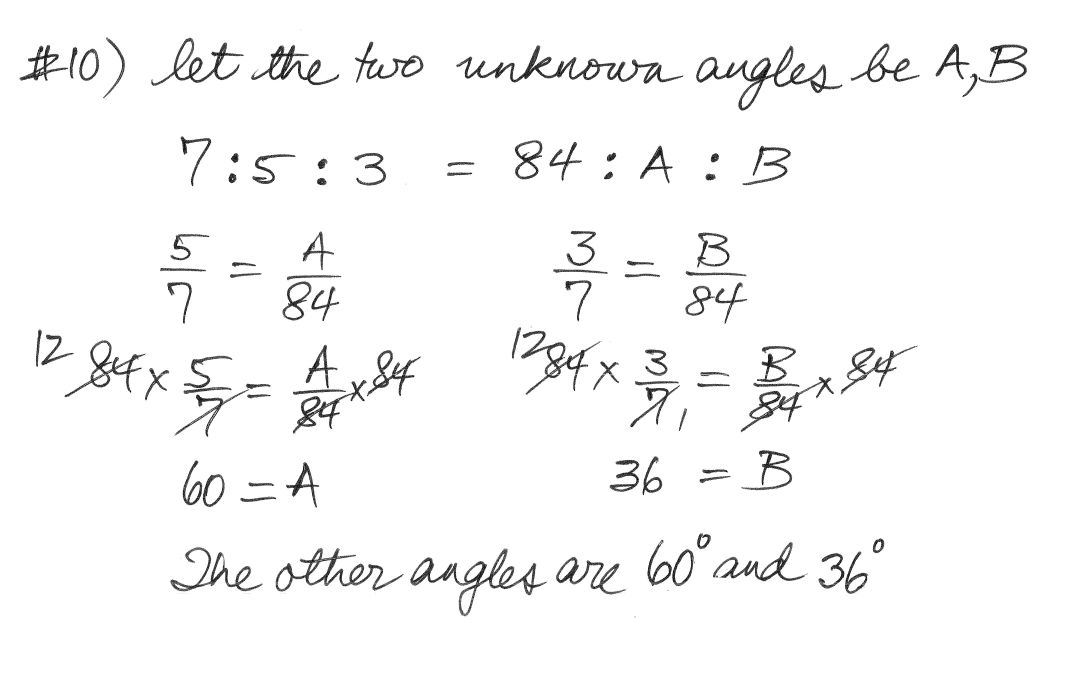 #10) let the two unknown angles be A, B
7 : 5 : 3 = 84 : A : B
5/7 = A/84 3/7 = B/84
12 84 x 5/7 = A/84 x 84 12 84 x 3/7 1 = B/84 x 84
60 = A 36 = B
The other angles are 60° and 36°